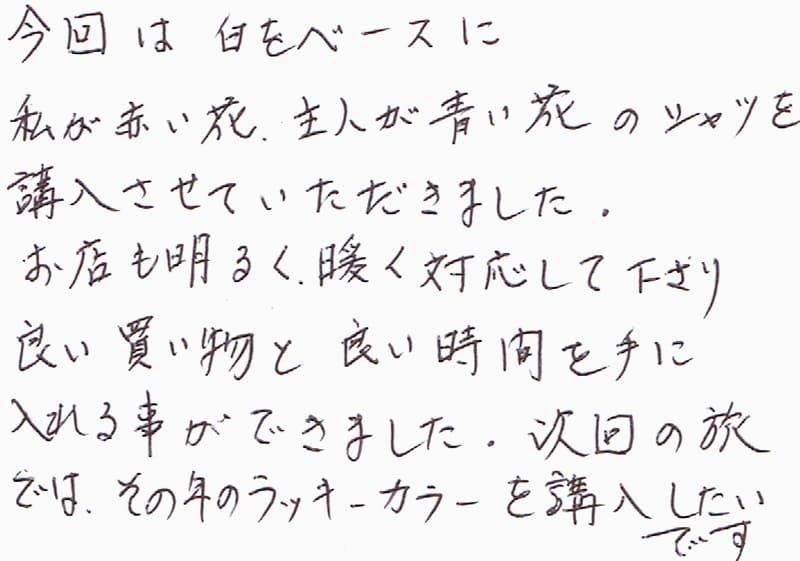 今回は 白をベースに
私が赤い花、主人が青い花のシャツを
講入させていただきました。
お店も明るく、暖く対応して下さり
良い買い物と良い時間を手に
入れる事ができました。次回の旅
では、その年のラッキーカラーを講入したい
です